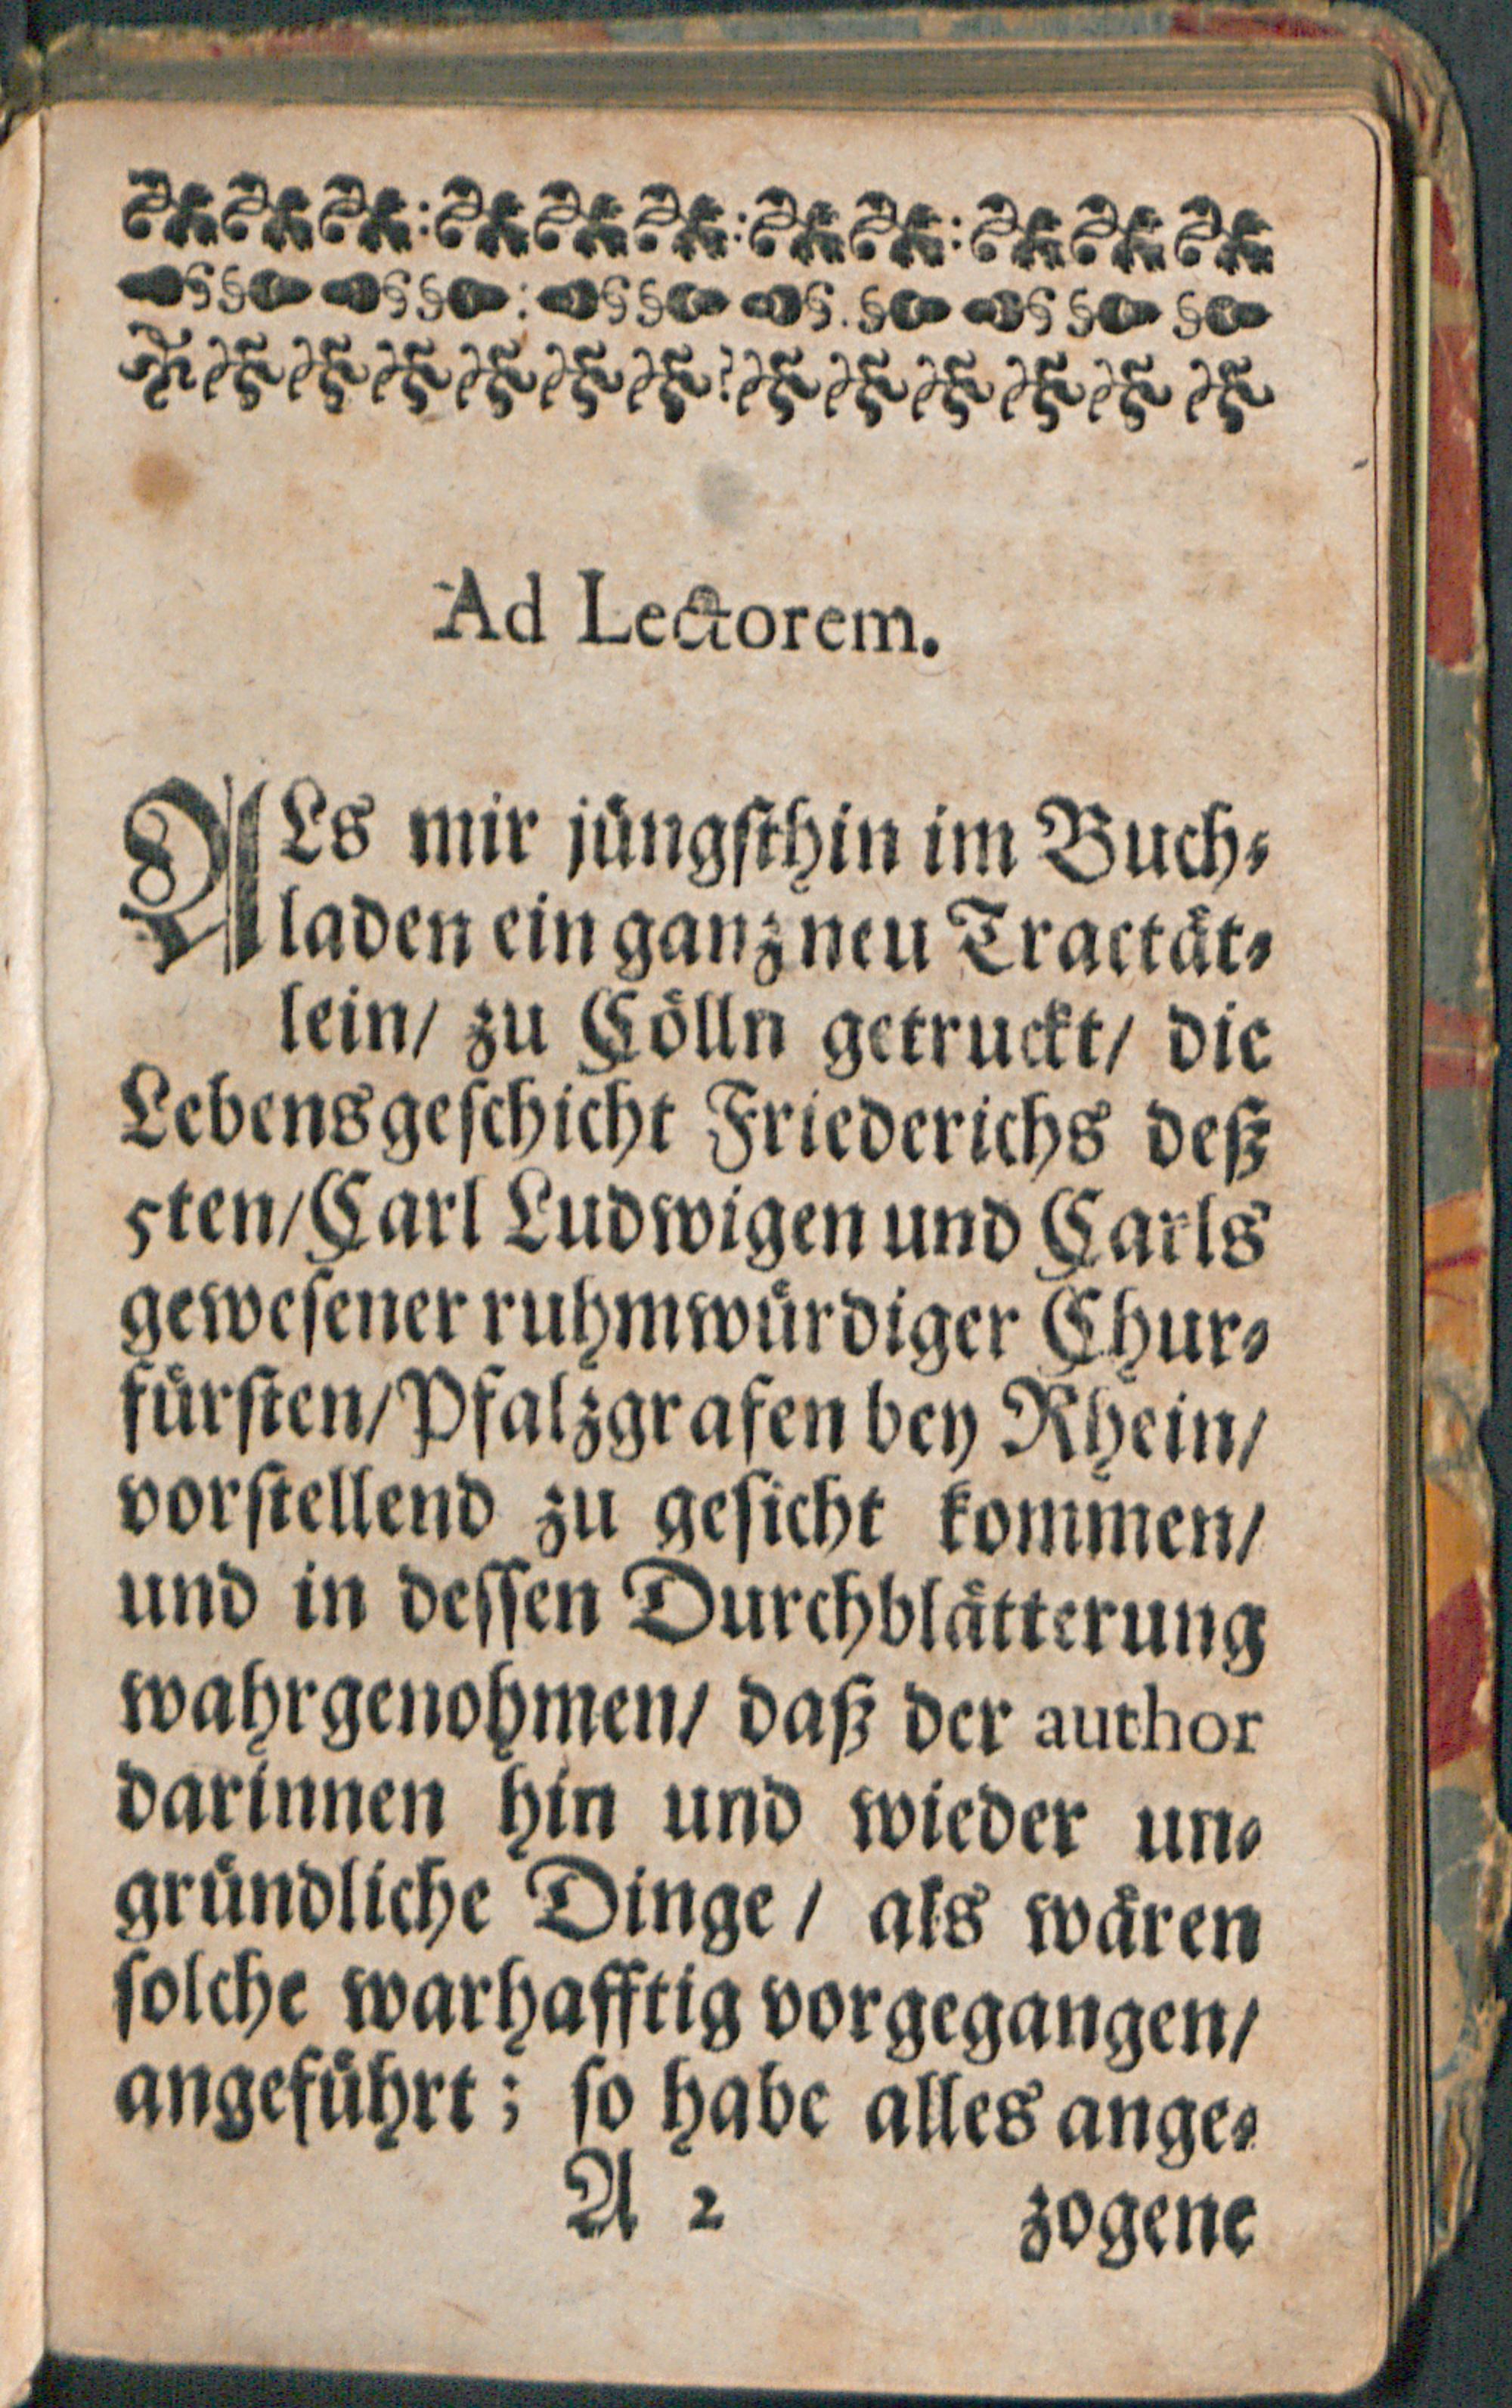 Ad Lectorem.
ALs mir jüngsthin im Buch⸗
laden ein ganz neu Tractät⸗
lein/ zu Cölln getruckt/ die
Lebensgeschicht Friederichs deß
5ten/ Carl Ludwigen und Carls
gewesener ruhmwürdiger Chur⸗
fürsten/ Pfalzgrafen bey Rhein/
vorstellend zu gesicht kommen/
und in dessen Durchblätterung
wahrgenohmen/ daß der author
darinnen hin und wieder un⸗
gründliche Dinge/ als wären
solche warhafftig vorgegangen/
angeführt; so habe alles ange⸗
A 2 zogene